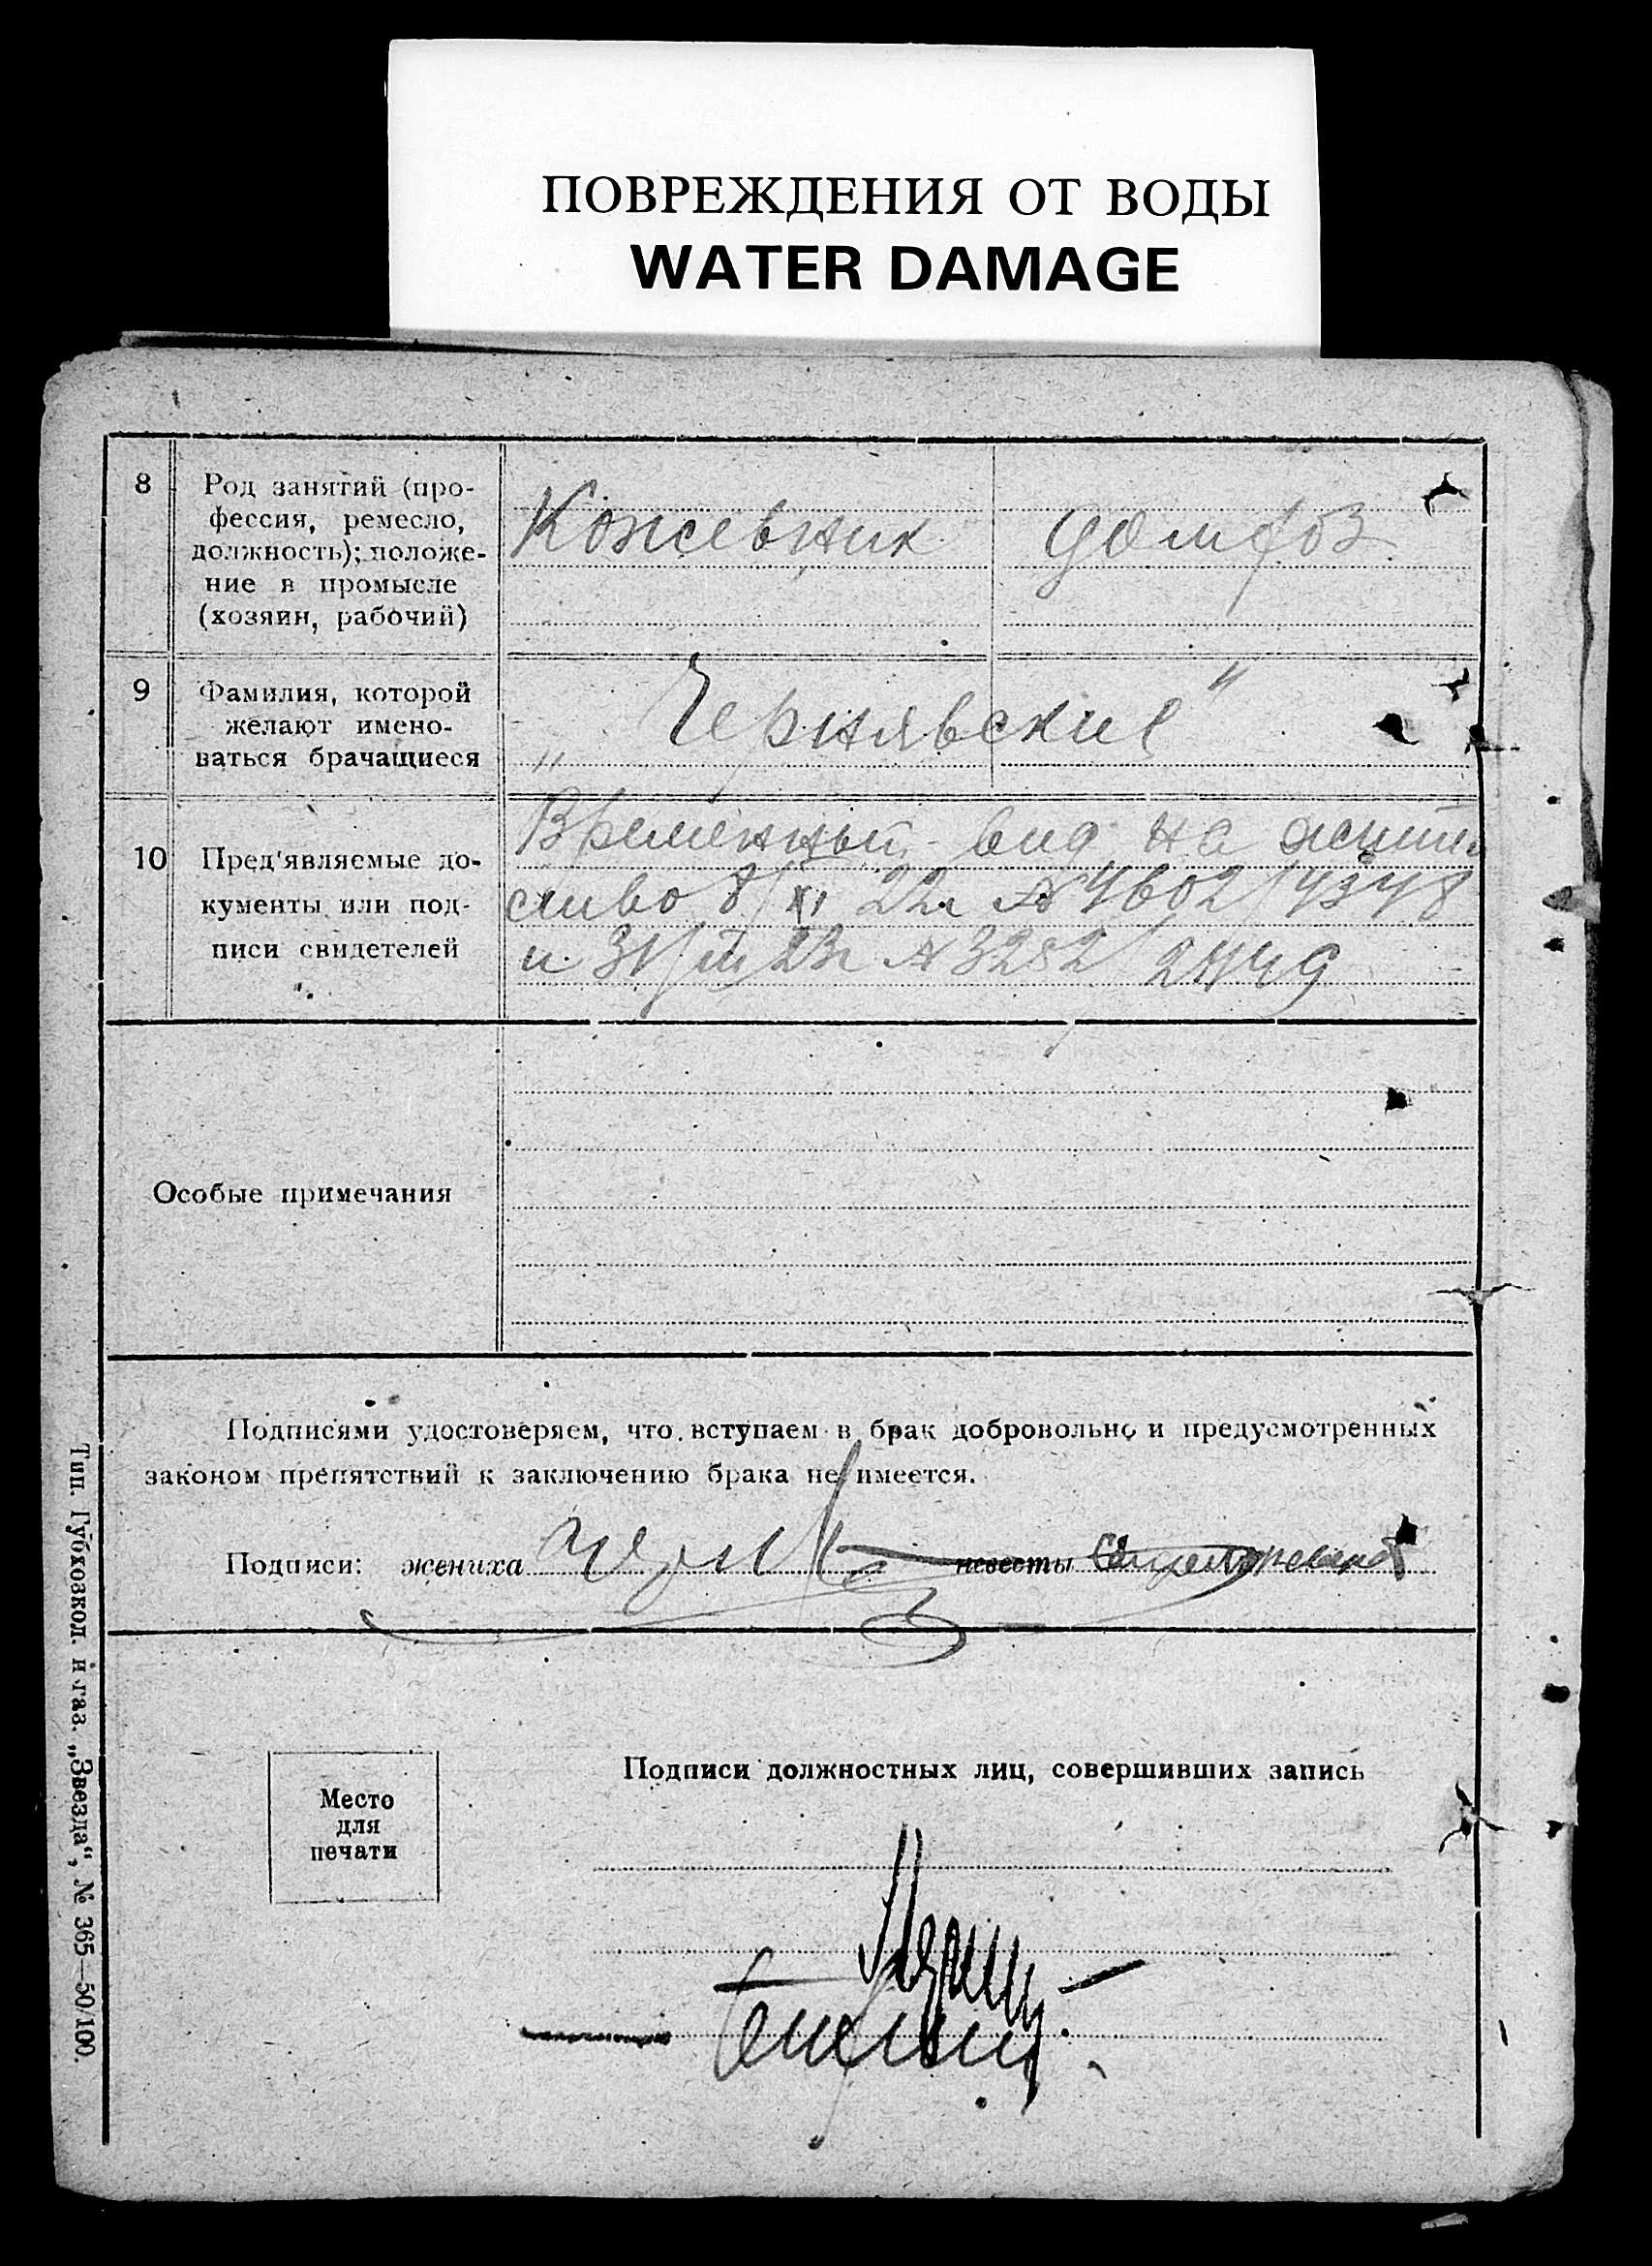 ПОВРЕЖДЕНИЯ ОТ ВОДЫ
WATER DAMAGE
8
Род занятий (про-
фессия, ремесло,
должность); положе-
ние в промысле
(хозяин, рабочий)
Кожевник
домхоз
9
Фамилия, которой
желают имено-
ваться брачащиеся
„ Чернявские "
10
Пред'являемые до-
кументы или под-
писи свидетелей
Временный вид на житель
ство 8/XI 22г № 4602/4348
и 31/III 23г № 3282/2449
Особые примечания
Подписями удостоверяем, что вступаем в брак добровольно и предусмотренных
законом препятствий к заключению брака не имеется.
Подписи: жениха невесты
Подписи должностных лиц, совершивших запись
Место
для
печати
Тип. Губхозкол. и газ. „Звезда“, № 365—50/100.